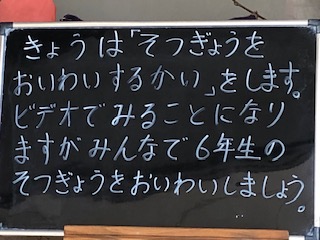 きょうは「そつぎょうを
おいわいするかい」をします。
ビデオでみることになり
ますがみんなで6年生の
そつぎょうをおいわいしましょう。